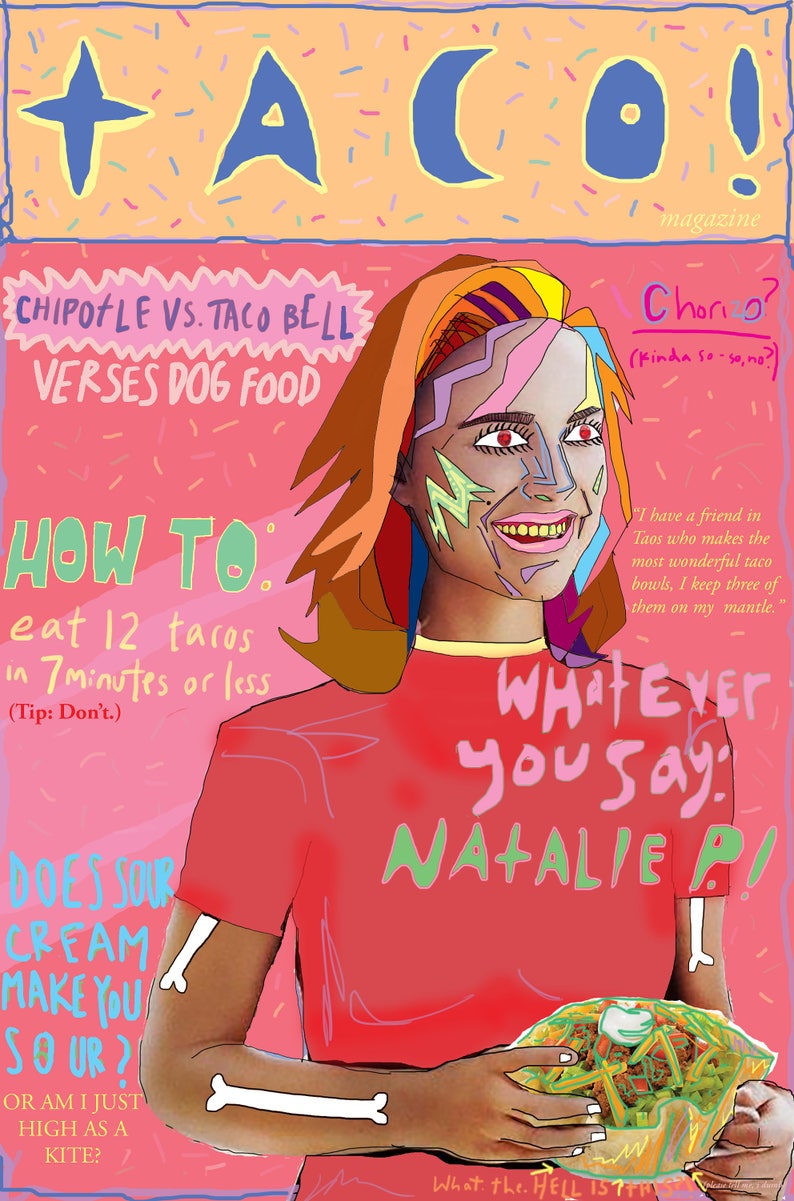 TACO!
magazine
CHIPOTLE VS. TACO BELL
VERSES DOG FOOD
Chorizo?
(kinda so-so, no?)
HOW TO:
eat 12 tacos
in 7 minutes or less
(Tip: Don't.)
"I have a friend in
Taos who makes the
most wonderful taco
bowls, I keep three of
them on my mantle."
WHatEVer
you say:
NAtALIE P.!
DOES SOUR
CREAM
MAKE YOU
SOUR?
OR AM I JUST
HIGH AS A
KITE?
What the HELL IS
(please tell me, i